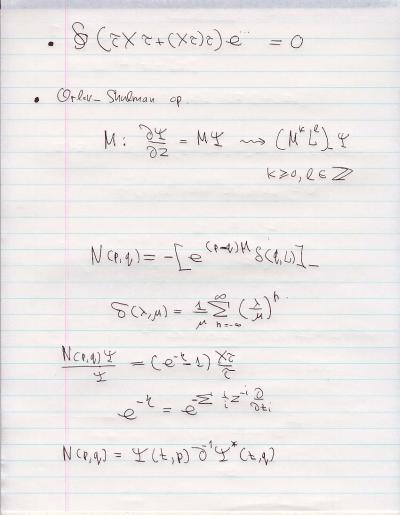 • ∮ (τXτ + (Xτ)τ) e^{...} = 0
• Orlov-Shulman op.
M : ∂Ψ/∂z = MΨ ⇝ (M^k L^l)_- Ψ
k ≥ 0, l ∈ ℤ
N(p,q) = -[e^{(p-q)M} δ(q,L)]_-
δ(λ,μ) = 1/μ ∑_{n=-∞}^{∞} (λ/μ)^n
N(p,q)Ψ/Ψ = (e^{-η} - 1) Xτ/τ
e^{-η} = e^{-∑ 1/i z^{-i} ∂/∂t_i}
N(p,q) = Ψ(t,p) ∂^{-1} Ψ^*(t,q)